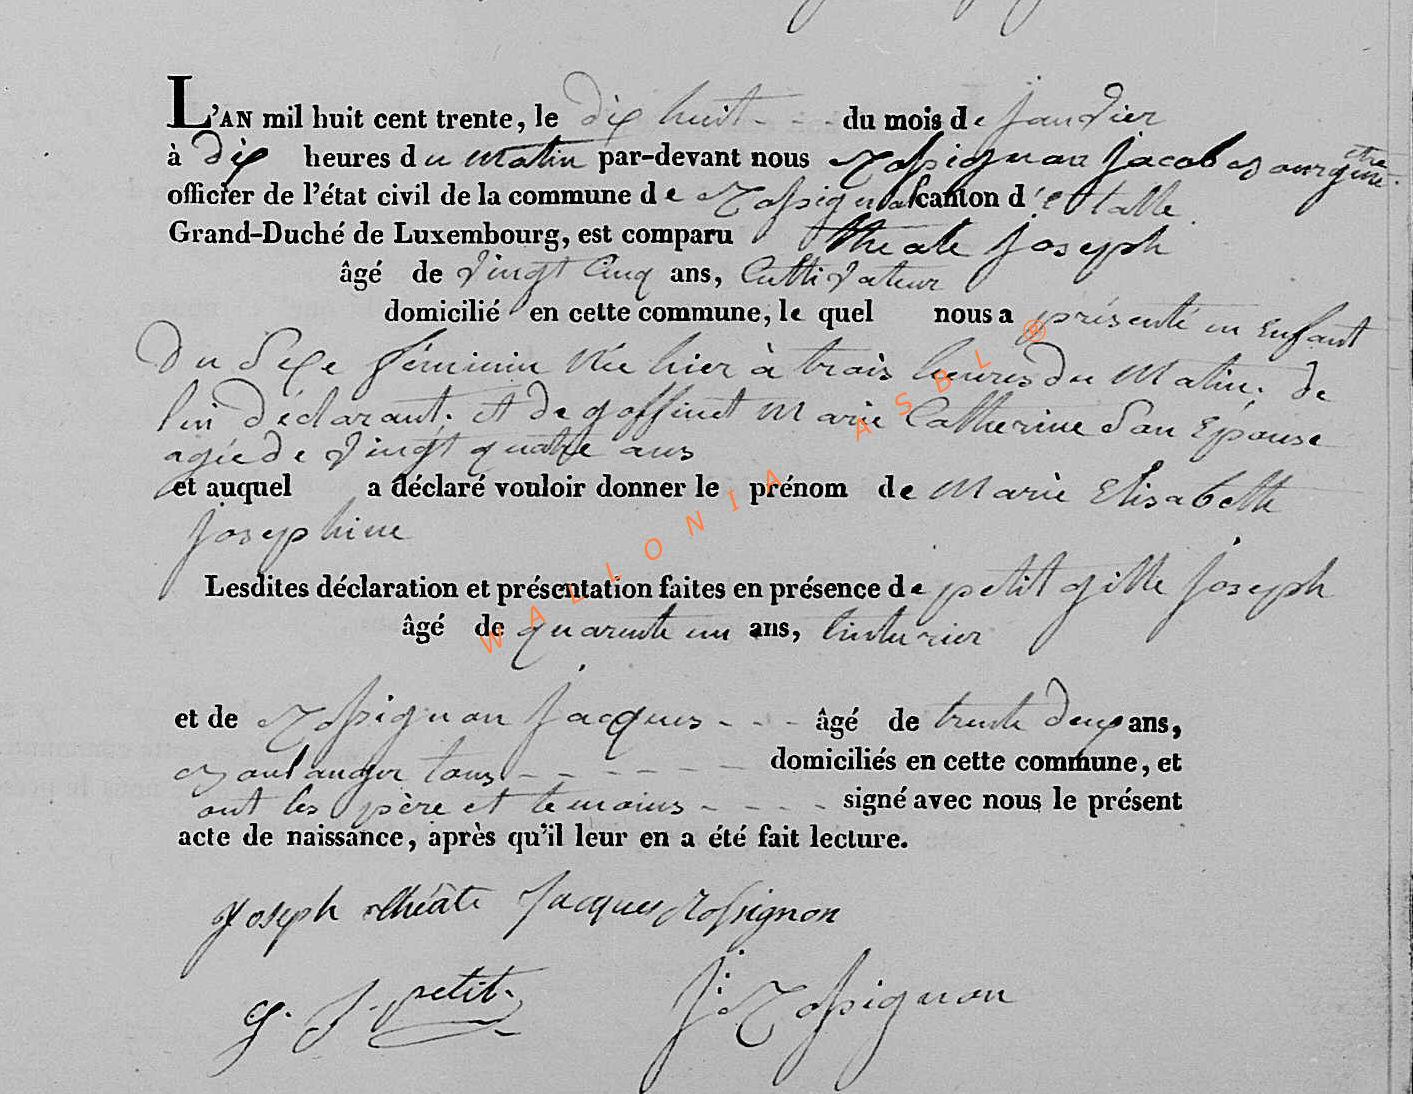 L'AN mil huit cent trente, le dix huit - - - du mois de janvier
à dix heures du matin par-devant nous Rossignon jacob bourgmetre
officier de l'état civil de la commune de Rossignol canton d'etalle
Grand-Duché de Luxembourg, est comparu theate joseph
âgé de vingt cinq ans, Cultivateur
domicilié en cette commune, le quel nous a présenté un enfant
du sexe féminin née hier à trois heures du matin, de
lui déclarant. et de goffinet marie Catherine son épouse
agée de vingt quatre ans
et auquel a déclaré vouloir donner le prénom de marie Elisabette
josephine
Lesdites déclaration et présentation faites en présence de petit gille joseph
âgé de quarente un ans, tinturier
et de Rossignon jacques - - - âgé de trente deux ans,
boulanger tous - - - - - - domiciliés en cette commune, et
ont les père et temoins - - - - signé avec nous le présent
acte de naissance, après qu'il leur en a été fait lecture.
joseph théâte Jacques Rossignon
g. J. petit. J: Rossignon
WALLONIA ASBL ®